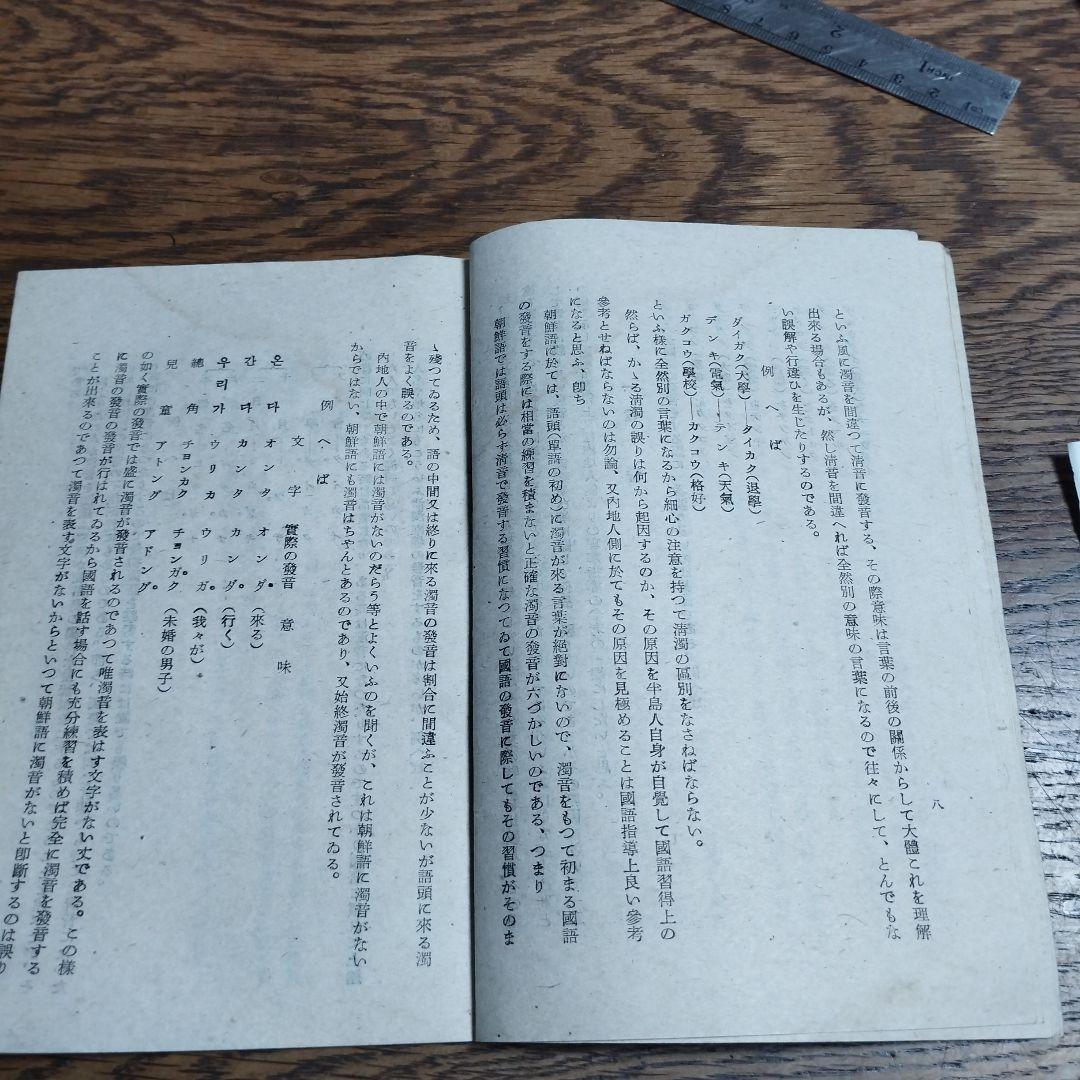 八
といふ風に濁音を間違つて淸音に發音する、その際意味は言葉の前後の關係からして大體これを理解
出來る場合もあるが、然し淸音を間違へれば全然別の意味の言葉になるので往々にして、とんでもな
い誤解や行違ひを生じたりするのである。
例へば
ダイガク(大學)――タイカク(退學)
デンキ(電氣)――テンキ(天氣)
ガクコウ(學校)――カクコウ(格好)
といふ樣に全然別の言葉になるから細心の注意を持つて淸濁の區別をなさねばならない。
然らば、かゝる淸濁の誤りは何から起因するのか、その原因を半島人自身が自覺して國語習得上の
參考とせねばならないのは勿論、又內地人側に於てもその原因を見極めることは國語指導上良い參考
になると思ふ、卽ち
朝鮮語に於ては、語頭(單語の初め)に濁音が來る言葉が絕對にないので、濁音をもつて初まる國語
の發音をする際には相當の練習を積まないと正確な濁音の發音が六づかしいのである、つまり
朝鮮語では語頭は必らず淸音で發音する習慣になつてゐて國語の發音に際してもその習慣がそのま
ゝ殘つてゐるため、語の中間又は終りに來る濁音の發音は割合に間違ふことが少ないが語頭に來る濁
音をよく誤るのである。
內地人の中で朝鮮語には濁音がないのだらう等とよくいふのを聞くが、これは朝鮮語に濁音がない
からではない、朝鮮語にも濁音はちやんとあるのであり、又始終濁音が發音されてゐる。
例へば
文字 實際の發音 意味
온다 オンタ オンダ (來る)
간다 カンタ カンダ (行く)
우리가 ウリカ ウリガ (我々が)
總角 チョンカク チョンガク (未婚の男子)
兒童 アトング アドング
の如く實際の發音では盛に濁音が發音されるのであつて唯濁音を表はす文字がない丈である。この樣
に濁音の發音が行はれてゐるから國語を話す場合にも充分練習を積めば完全に濁音を發音する
ことが出來るのであつて濁音を表す文字がないからといつて朝鮮語に濁音がないと卽斷するのは誤り